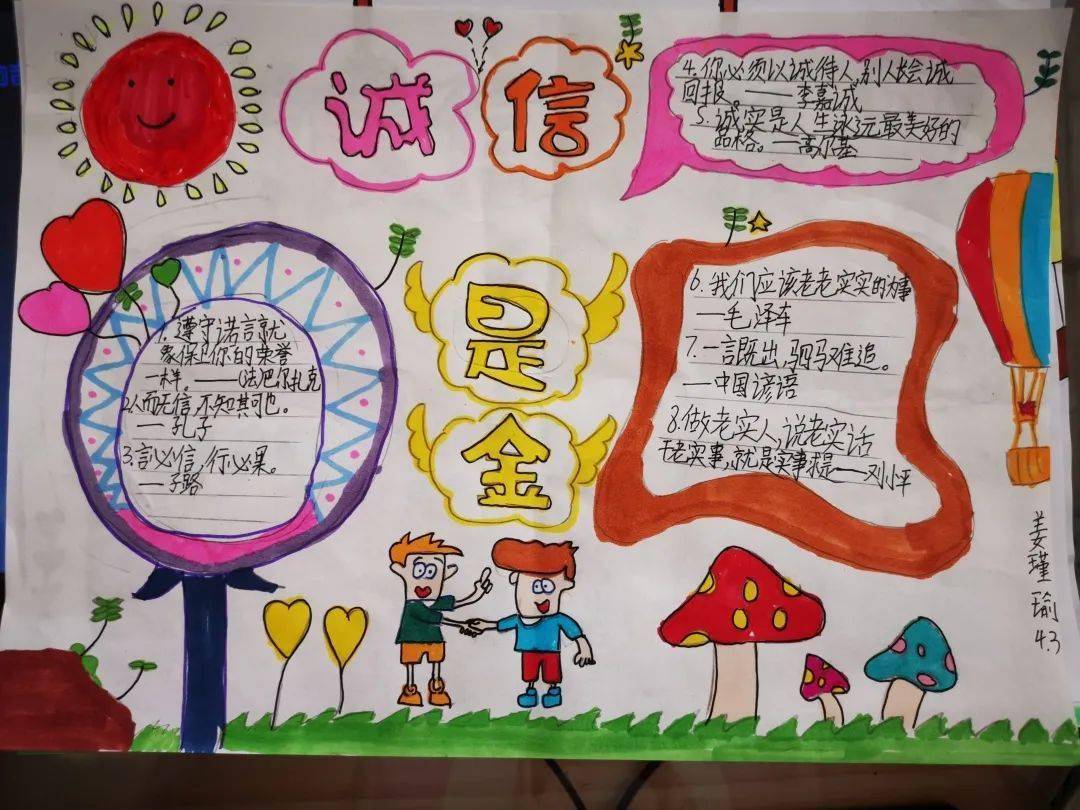 诚信
是
金
1.遵守诺言就
象保卫你的荣誉
一样。——(法)巴尔扎克
2.人而无信,不知其可也。
—孔子
3.言必信,行必果。
—子路
4.你必须以诚待人,别人会诚
回报。——李嘉诚
5.诚实是人生永远最美好的
品格。—高尔基
6.我们应该老老实实的办事
—毛泽东
7.一言既出,驷马难追。
—中国谚语
8.做老实人,说老实话
干老实事,就是实事求是——邓小平
姜瑾瑜4.3